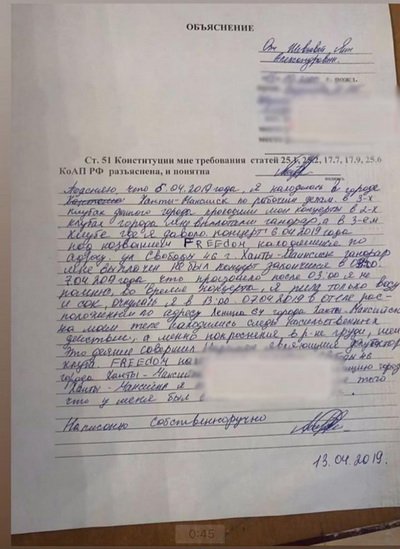 ОБЪЯСНЕНИЕ
От
Александровны.
г. рожд.
Ст. 51 Конституции мне требования статей 25.1, 25.2, 17.7, 17.9, 25.6
КоАП РФ разъяснена, и понятна
Поясняю, что 5.04.2019 года, я находилась в городе
Ханты-Мансийск по рабочим делам. В 3-х
клубах данного города проходили мои концерты в 2-х
клубах города мне выплатили гонорар, а в 3-ем
клубе где я давала концерт 6.04.2019 года
под названием FREEDOM находящемся по
адресу ул. Свободы 46 г. Ханты-Мансийск гонорар
мне выплачен не был концерт закончился в
7.04.2019 года. что произошло после 03:00 я не
помню, во время концерта, я пила только воду
и сок, очнулась я в 13:00 07.04.2019 в отеле рас-
положенном по адресу Ленина 64 города Ханты-Мансийск
на моём теле находились следы насильственных
действие, а менно покраснение в р-не груди, шеи
Это деяние совершил
клуба FREEDOM
города Ханты-Мансийск
Ханты-Мансийска я того
что у меня был с
Написанно Собственноручно
13.04.2019.
0:45